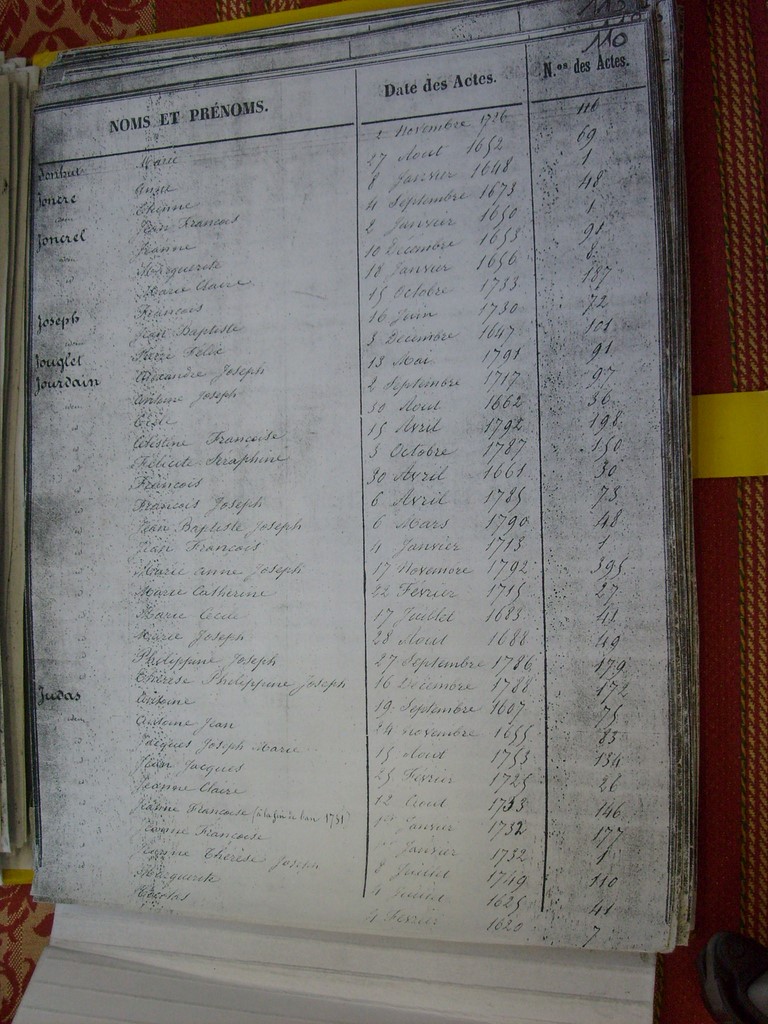 110
NOMS ET PRÉNOMS. Date des Actes. N.os des Actes.
Marie 2 Novembre 1726 116
Jonère Anne 27 Aout 1652 69
idem Etienne 8 Janvier 1648 1
Joncrel Jean Francois 4 Septembre 1673 48
Jeanne 2 Janvier 1650 1
Marguerite 10 Decembre 1653 91
Marie Claire 18 Janvier 1656 8
Joseph Francois 15 Octobre 1733 187
Jean Baptiste 16 Juin 1730 72
Jouglet Marie Felix 3 Decembre 1647 101
Jourdain Alexandre Joseph 13 Mai 1791 91
idem Antoine Joseph 2 Septembre 1717 97
Cecile 30 Aout 1662 36
Celestine Francoise 15 Avril 1792 198
Felicite Seraphine 3 Octobre 1787 150
Francois 30 Avril 1661 30
Francois Joseph 6 Avril 1785 73
Jean Baptiste Joseph 6 Mars 1790 48
Jean Francois 4 Janvier 1713 1
Marie Anne Joseph 17 Novembre 1792 395
Marie Catherine 22 Fevrier 1715 27
Marie Cecile 17 Juillet 1683 41
Marie Joseph 28 Aout 1688 49
Philippine Joseph 27 Septembre 1786 179
Therese Philippine Joseph 16 Decembre 1788 172
Judas Antoine 19 Septembre 1607 75
idem Antoine Jean 24 Novembre 1655 83
Jacques Joseph Marie 15 Aout 1753 134
Jean Jacques 25 Fevrier 1725 26
Jeanne Claire 12 Aout 1733 146
Jeanne Francoise (à la fin de l'an 1731) 1er Janvier 1732 177
Jeanne Francoise Janvier 1732 1
Jeanne Thérèse Joseph 8 Juillet 1749 110
Marguerite 4 1625 41
Nicolas 4 Fevrier 1620 7